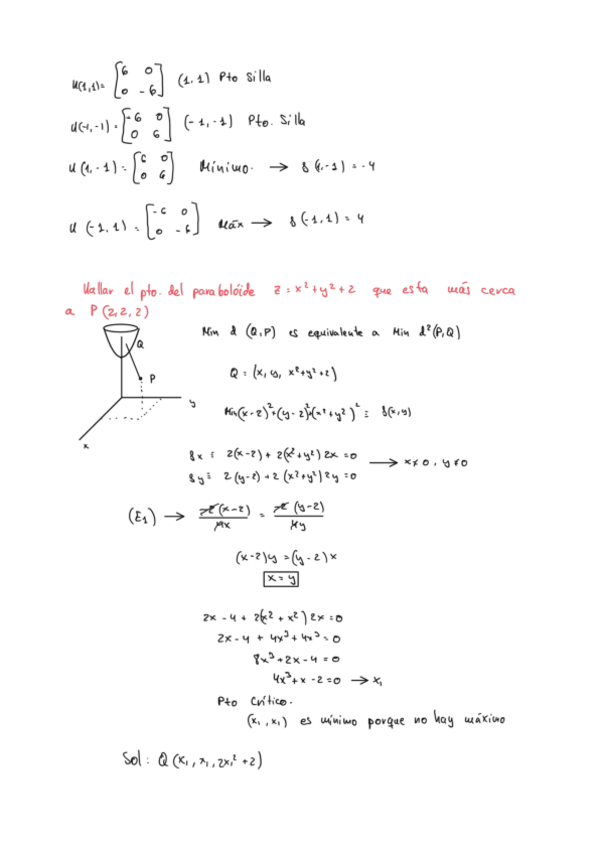 H(1,1) = [6 0; 0 -6] (1,1) Pto Silla
H(-1,-1) = [-6 0; 0 6] (-1,-1) Pto. Silla
H(1,-1) = [6 0; 0 6] Mínimo. → f(1,-1) = -4
H(-1,1) = [-6 0; 0 -6] Máx → f(-1,1) = 4
Hallar el pto. del paraboloide z = x² + y² + 2 que esta más cerca
a P(2,2,2)
Min d (Q,P) es equivalente a Min d²(P,Q)
Q
P
y
x
Q = (x, y, x²+y²+2)
Min (x-2)²+(y-2)²+(x²+y²)² = f(x,y)
fx = 2(x-2) + 2(x²+y²) 2x = 0
fy = 2(y-2) + 2(x²+y²) 2y = 0
→ x≠0, y≠0
(E₁) → -2(x-2)/4x = -2(y-2)/4y
(x-2)y = (y-2)x
x = y
2x - 4 + 2(x² + x²) 2x = 0
2x - 4 + 4x³ + 4x³ = 0
8x³ + 2x - 4 = 0
4x³ + x - 2 = 0 → x₁
Pto Crítico.
(x₁, x₁) es mínimo porque no hay máximo
Sol: Q (x₁, x₁, 2x₁² + 2)